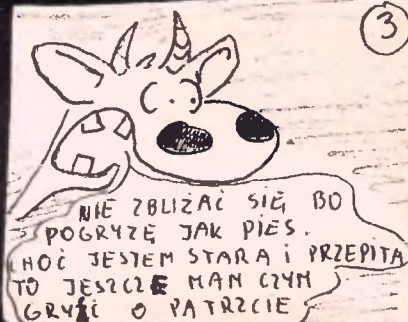 3
NIE ZBLIŻAĆ SIĘ, BO
POGRYZĘ JAK PIES.
HOĆ JESTEM STARA I PRZEPITA
TO JESZCZE MAN CZYM
GRYŹĆ O PATRZCIE